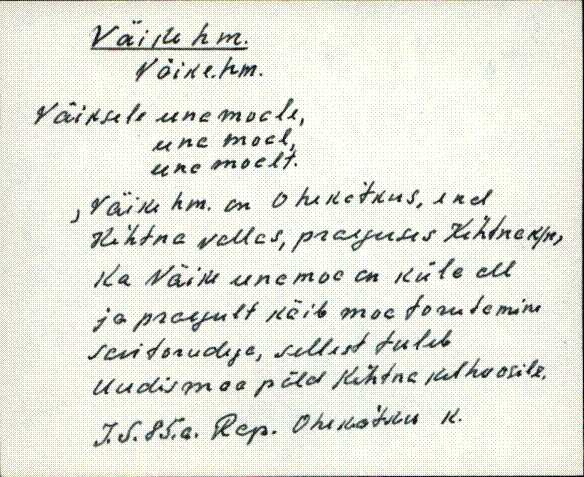 Väike hm.
Väike.hm.
Väiksele unemaale,
une maal,
une maalt.
„Väike hm. on Ohekatkus, end
Kehtna vallas, praeguses Kehtna k/n,
Ka Väike unemaa on küla all
ja praegult käib maa torutamine
savitorudega, sellest tuleb
Uudismaa põld Kehtna kolhoosile.
J.S. 85.a. Rap. Ohekatku k.